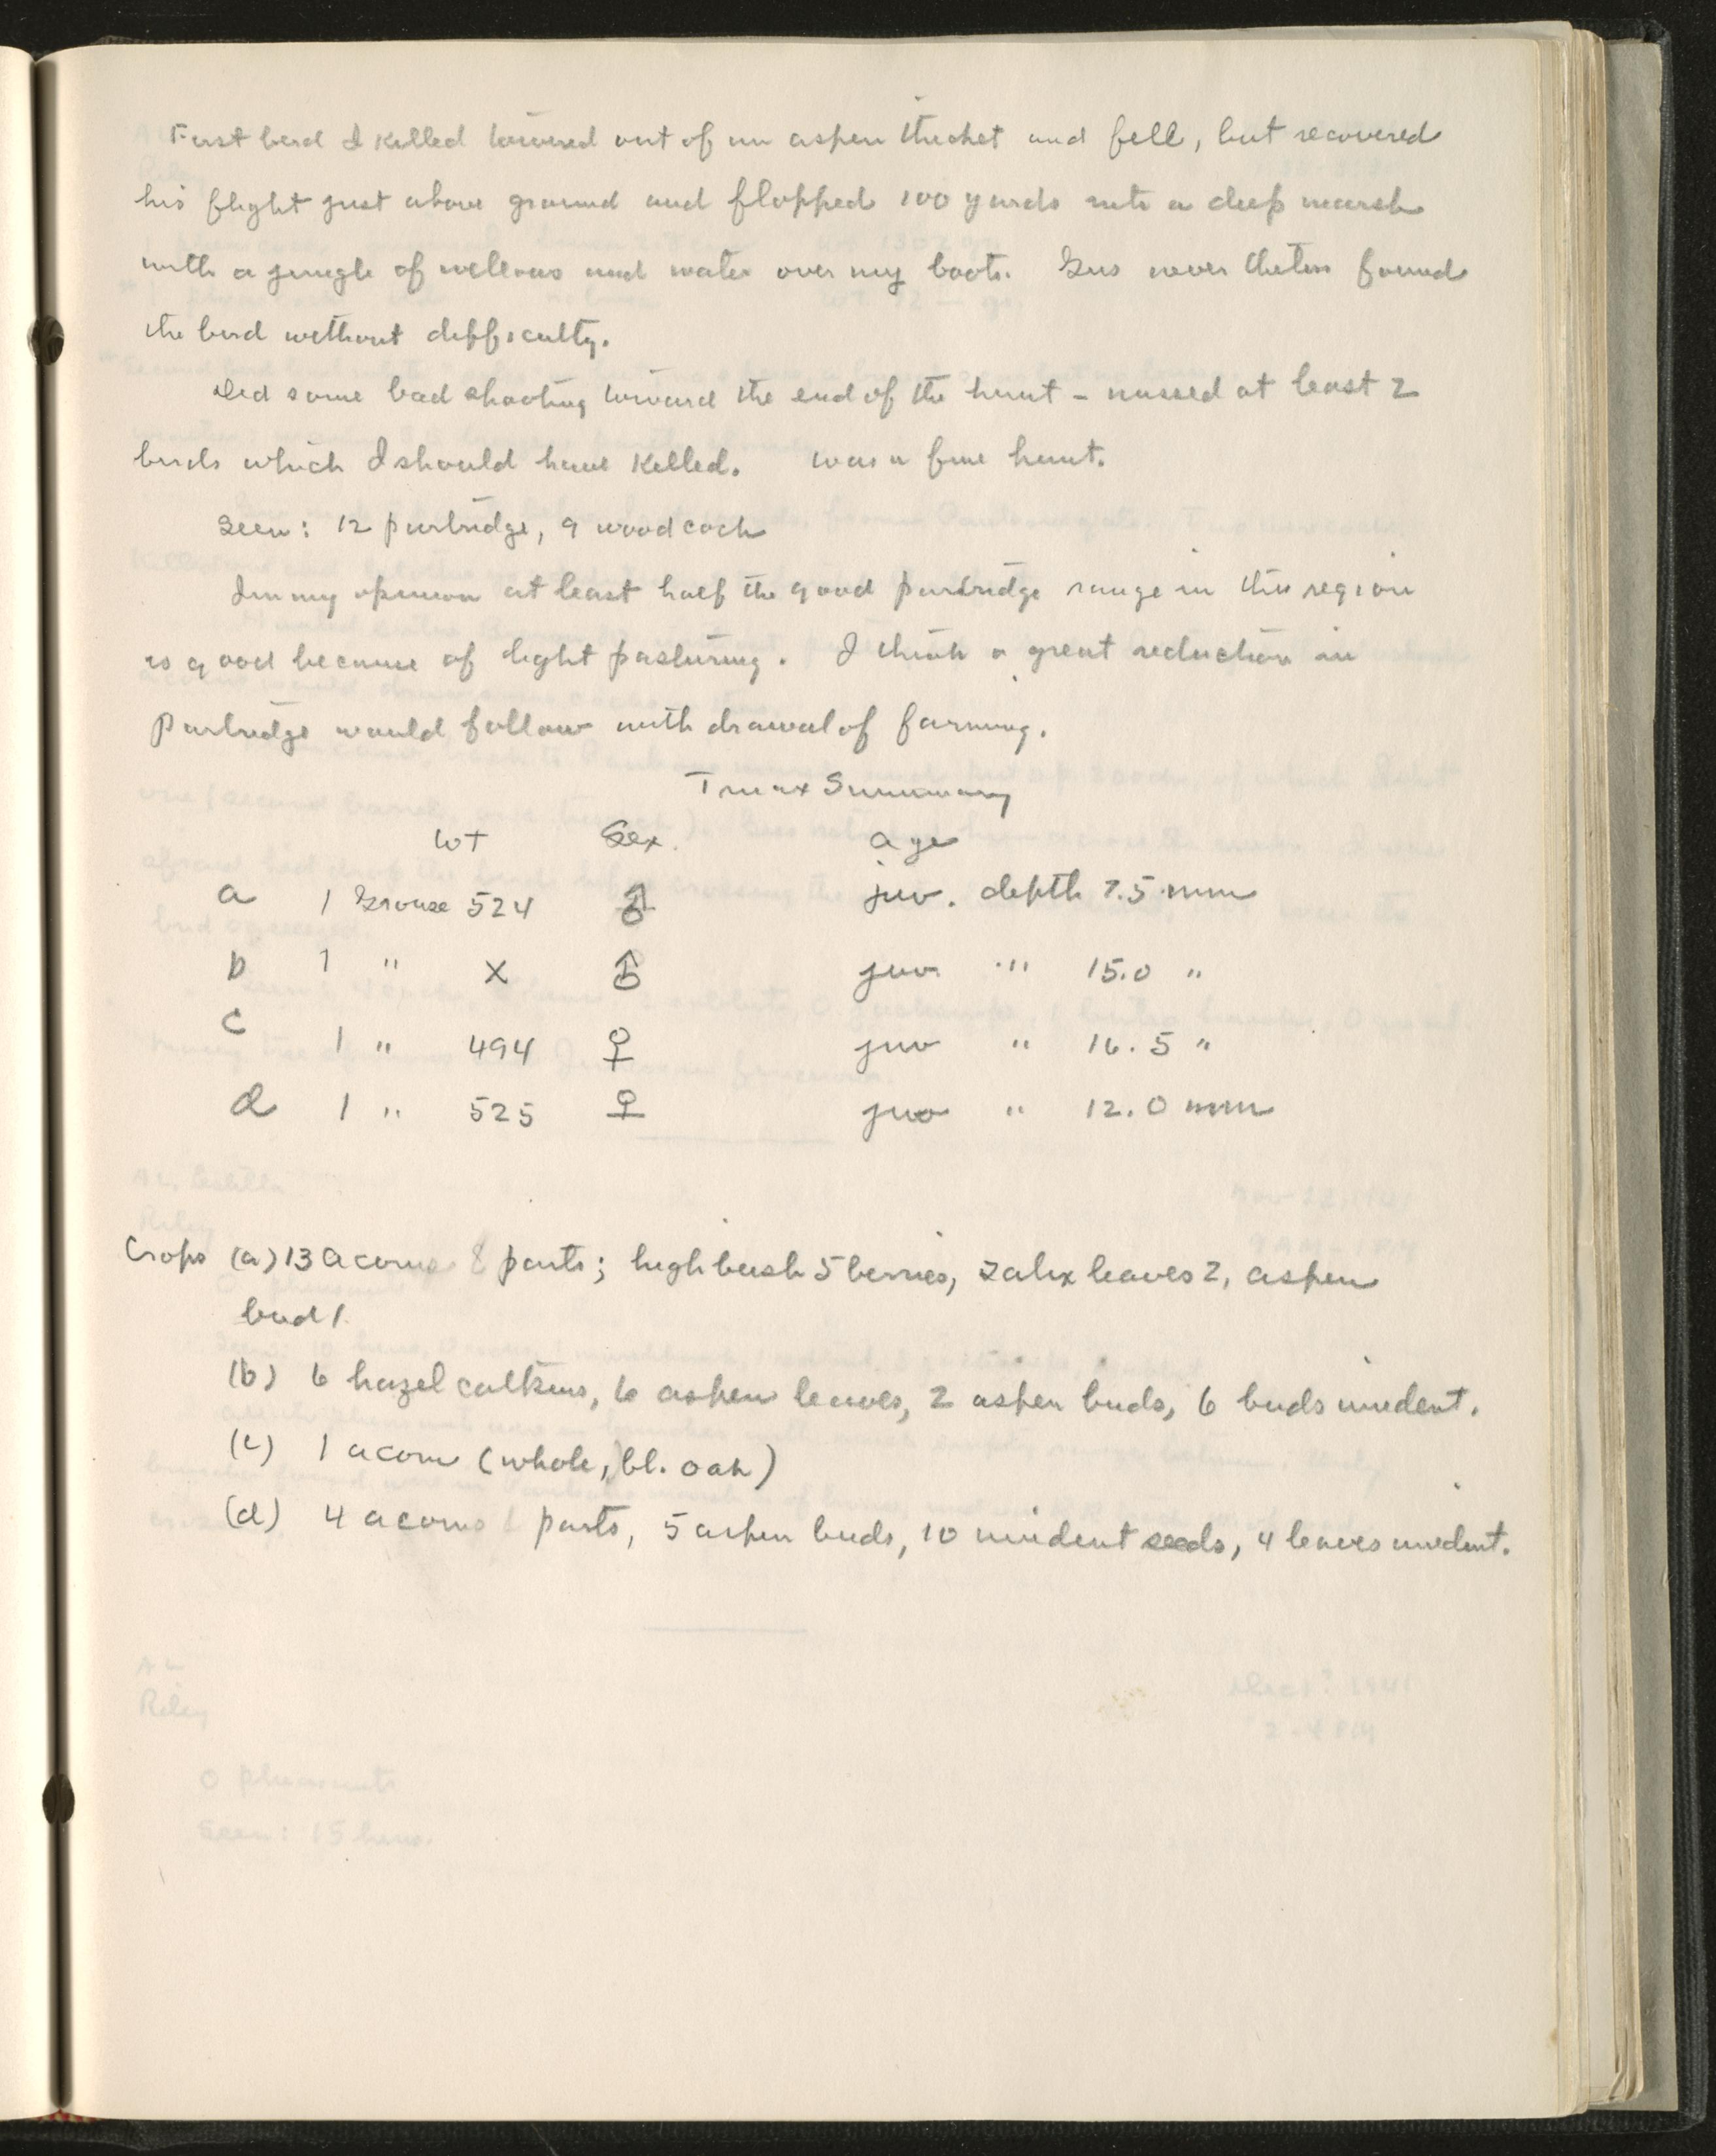 First bird I killed towered out of an aspen thicket and fell, but recovered
his flight just above ground and flopped 100 yards into a deep marsh
with a jungle of willows and water over my boots. Gus never theless found
the bird without difficulty.
Did some bad shooting toward the end of the hunt - missed at least 2
birds which I should have killed. Was a fine hunt.
Seen: 12 partridge, 9 woodcock
In my opinion at least half the good partridge range in this region
is good because of light pasturing. I think a great reduction in
Partridge would follow withdrawal of farming.
Truax Summary
Wt Sex. age
a 1 Grouse 524 ♂ juv. depth 7.5 mm
b 1 " X ♂ juv " 15.0 "
c 1 " 494 ♀ juv " 16.5 "
d 1 " 525 ♀ juv " 12.0 mm
Crops (a) 13 acorn parts; highbush 5 berries, salix leaves 2, aspen
bud 1.
(b) 6 hazel catkins, 6 aspen leaves, 2 aspen buds, 6 buds unident.
(c) 1 acorn (whole, bl. oak)
(d) 4 acorn parts, 5 aspen buds, 10 unident seeds, 4 leaves unident.